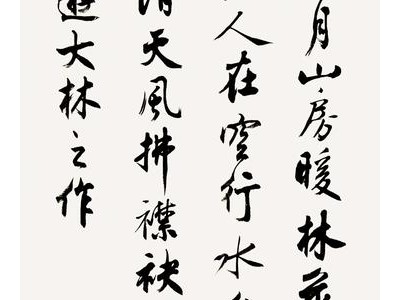 月山房暖林
人在空行水
天風拂襟袂
遊大林之作